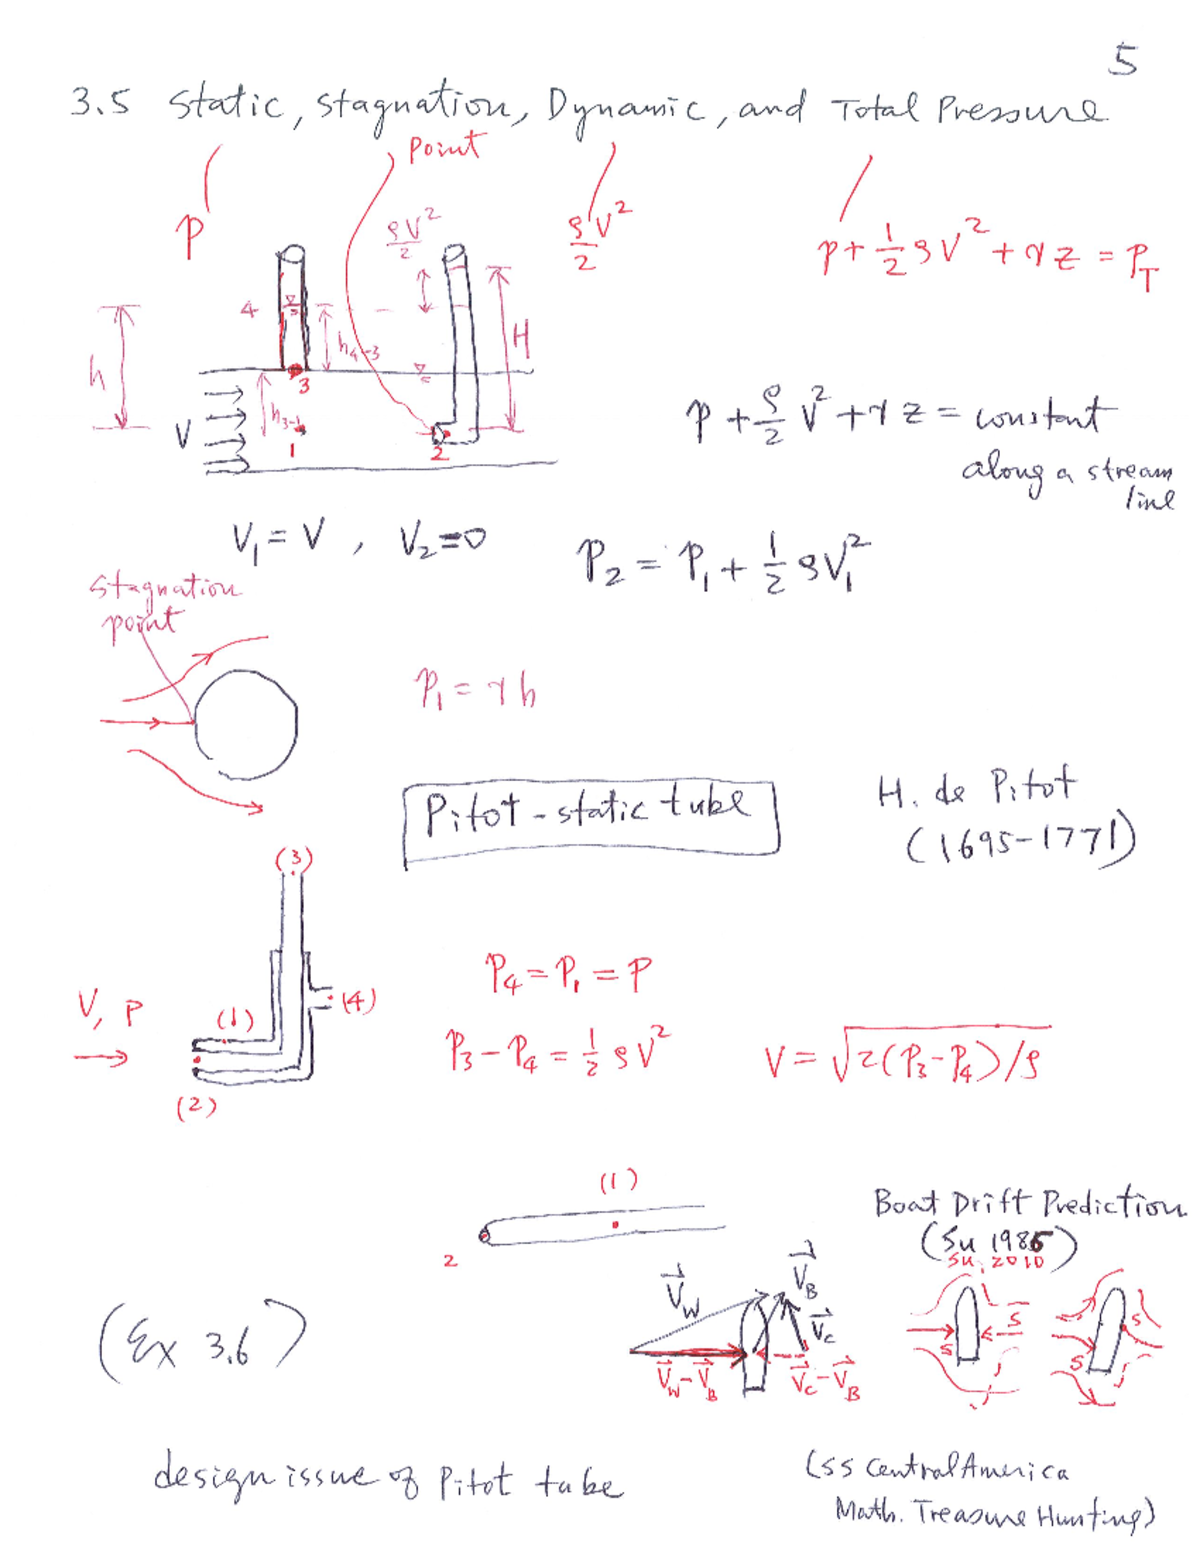 5
3.5 Static, Stagnation, Dynamic, and Total Pressure
Point
p
ρV²/2
ρV²/2
p + 1/2 ρV² + γz = P_T
4
h
h₄₋₃
H
3
V
h₃₋₁
1
2
p + ρ/2 V² + γz = constant
along a stream
line
V₁ = V , V₂=0
P₂ = P₁ + 1/2 ρV₁²
Stagnation
point
P₁ = γh
Pitot-static tube
H. de Pitot
(1695-1771)
(3)
P₄ = P₁ = P
V, P
(1)
(4)
P₃ - P₄ = 1/2 ρV²
V = √2(P₃-P₄)/ρ
(2)
(1)
2
Boat Drift Prediction
(Su 1986)
Su, 2010
V⃗_W
V⃗_B
V⃗_C
V⃗_W-V⃗_B
V⃗_C-V⃗_B
S
S
S
S
(Ex 3.6)
design issue of Pitot tube
(SS Central America
Math. Treasure Hunting)